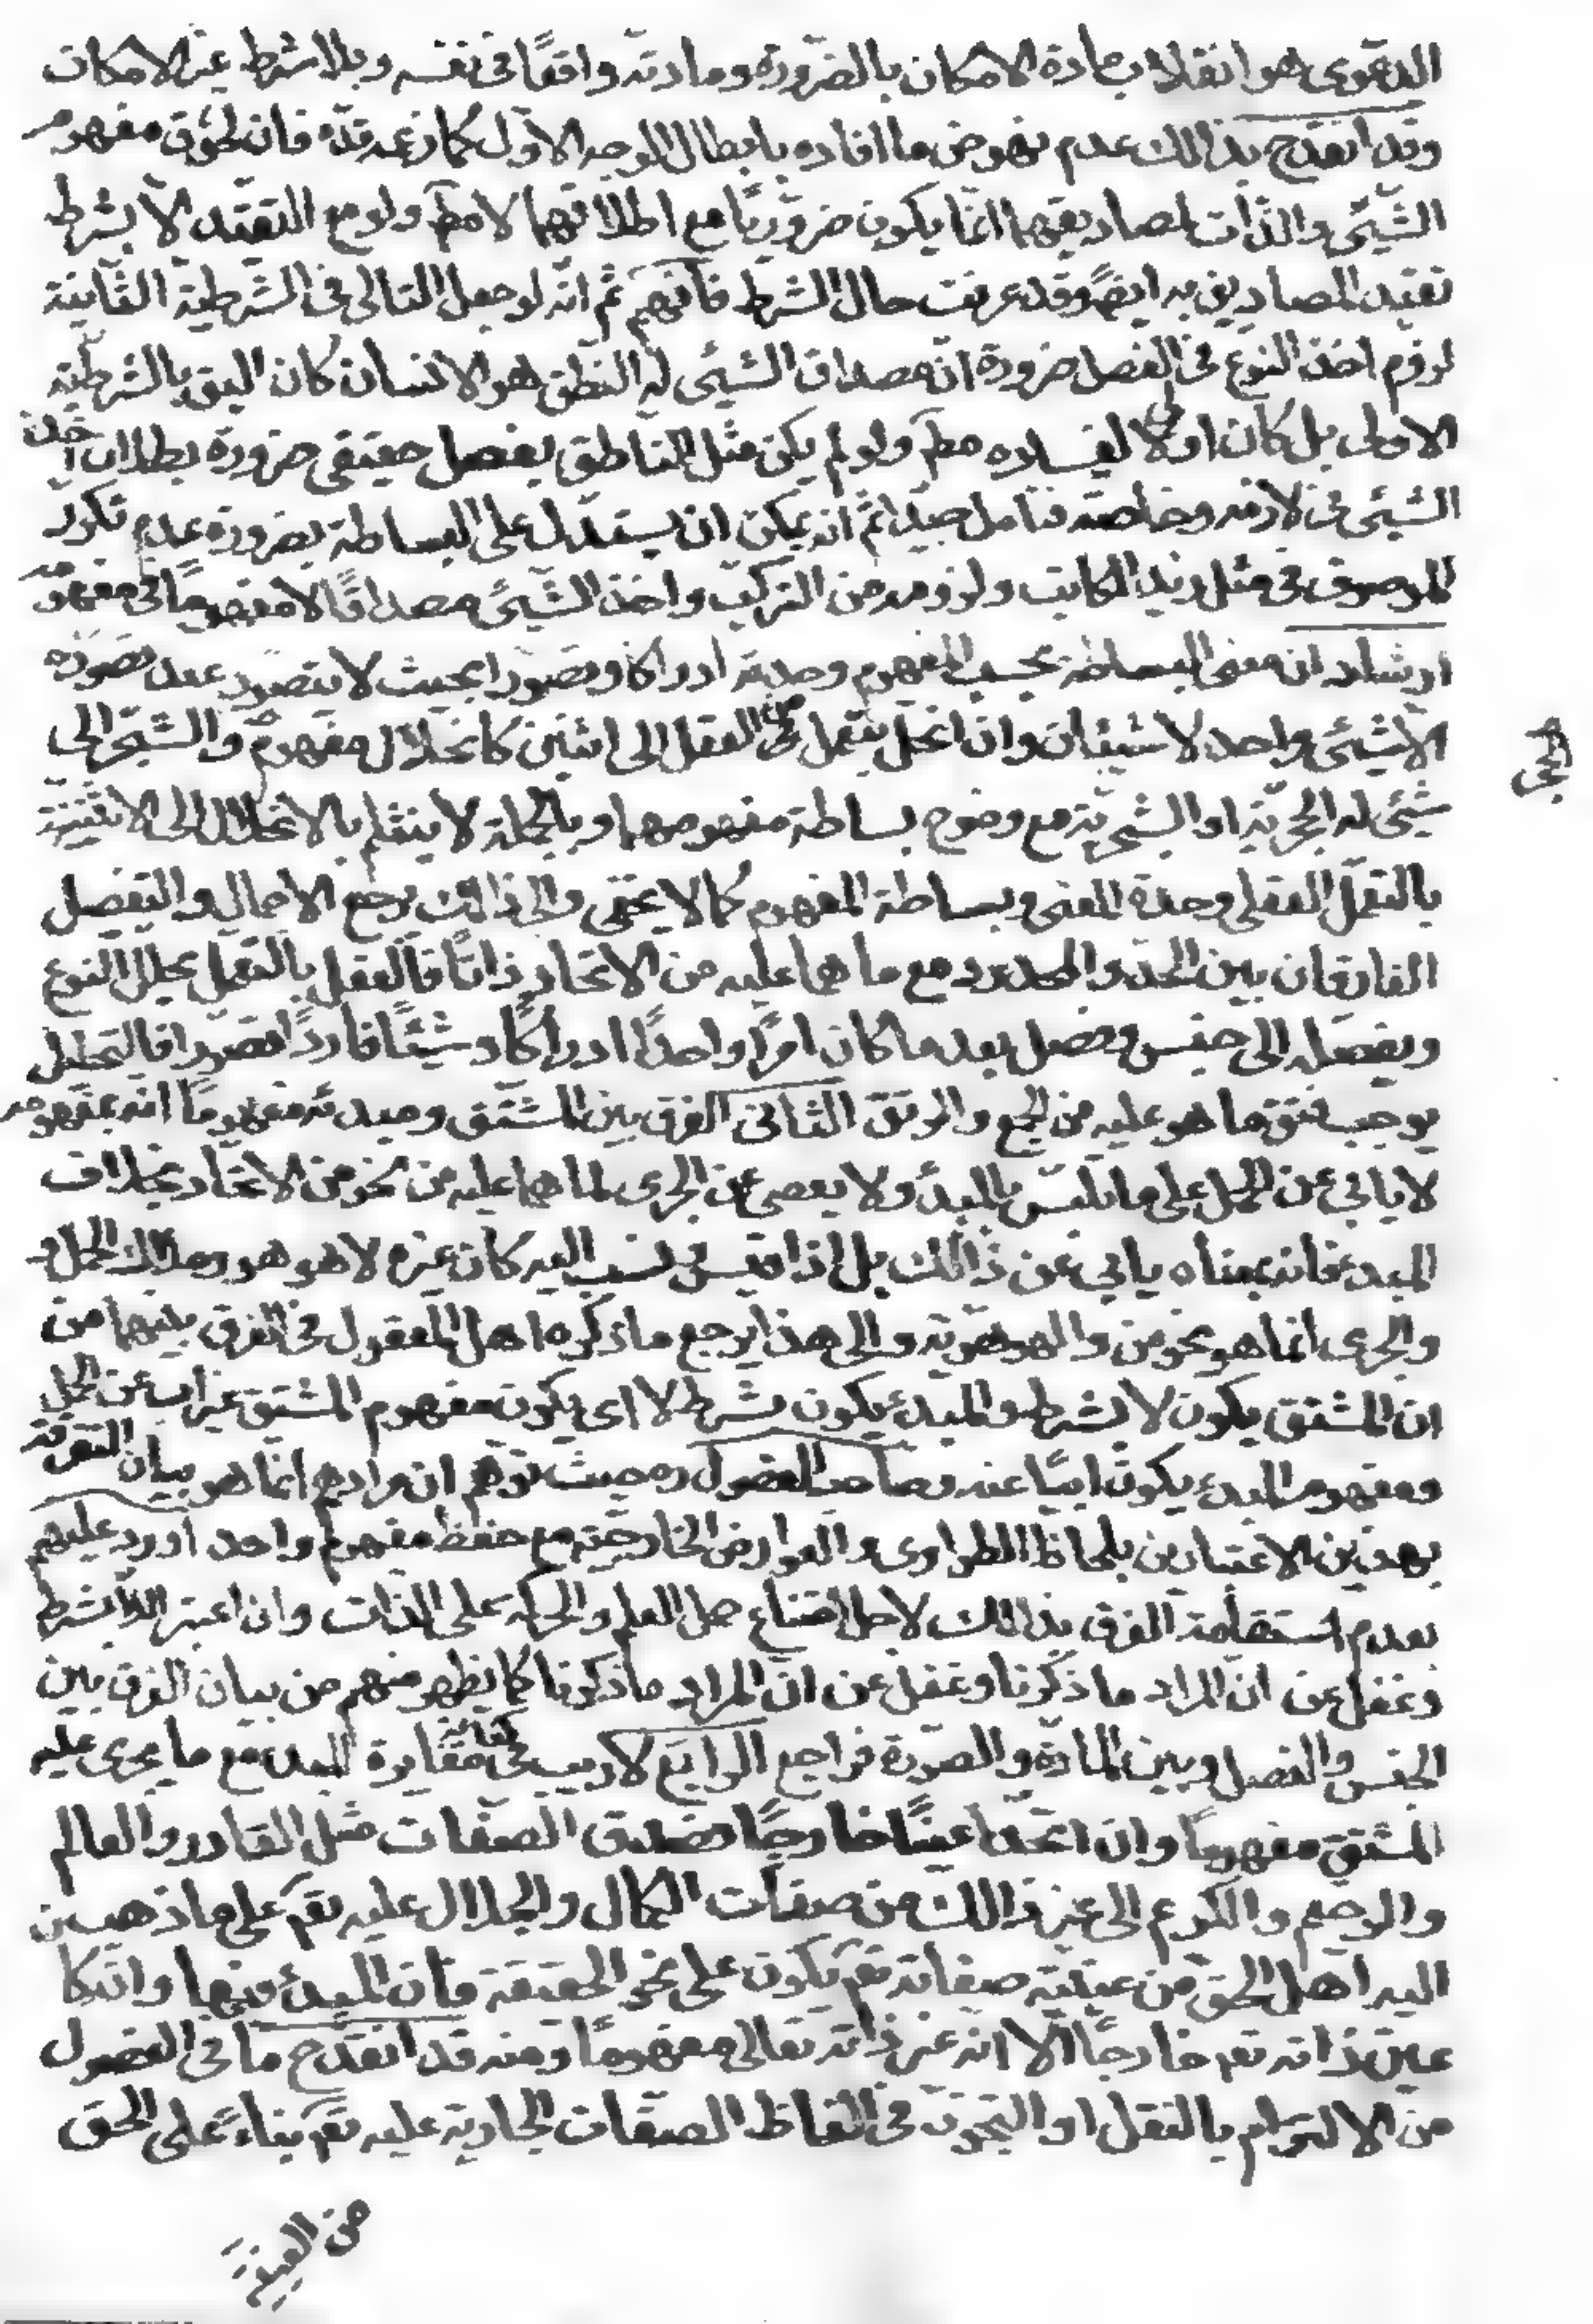 الدعوى هو انقلاب مادة الامكان بالضرورة ومادته واقعًا فى نفسه وبلا شرط غير الامكان
وقد انقدح بذالك عدم نهوض ما افاده بابطال الوجه الاوّل كما زعمه قدّه فان لحوق مفهوم
الشّيئى والذّات لمصاديقهما انّما يكون ضروريًّا مع اطلاقهما لا مطَ ولو مع التقيّد الّا بشرط
تقيّد المصاديق به ايضًا وقد عرفت حال الشرط فافهم ثم انّه لو جعل التالى فى الشّرطيّة الثّانية
لزوم اخذ النوع فى الفصل ضرورة انّ مصداق الشيئى له النطق هو الانسان كان اليق بالشرطيّة
الاولى بل كان اولى لفساده مطَ ولو لم يكن مثل الناطق بفصل حقيقى ضرورة بطلان اخذ
الشيئى فى لازمه وخاصّته فتامل جيدا ثم انه يمكن ان يستدل على البساطة بضرورة عدم تكرّر
الموصوف فى مثل زيد الكاتب ولزومه من التركّب واخذ الشّيئ مصداقًا لا مفهومًا فى مفهومه
ارشاد ان معنى البساطة بحسب المفهوم وحدته ادراكا وتصورا بحيث لا يتصور عند تصوّره
الا شيئى واحد لا شيئان وان انحل بتعمل من العقل الى اثنين كانحلال مفهوم والشّجر الى
الحجر
شيئى له الحجريّة او الشجريّة مع وضوح بساطة مفهومهما وبالجملة لا ينثلم بالانحلال الى الاثنينيّة
بالتعمّل العقلى وحدة المعنى وبساطة المفهوم كما لا يخفى والى ذالك يرجع الاجمال والتفصيل
الفارقان بين الحدّ والمحدود مع ما هما عليه من الاتحاد ذاتًا فالعقل بالتعمل يحلل النوع
ويفصّله الى جنس وفصل بعد ما كان امرًا واحدًا ادراكًا وشيئًا فاردًا تصورا فالتحليل
يوجب فتق ما هو عليه من الجمع والرتق الثانى الفرق بين المشتق ومبدئه مفهومًا انه بمفهومه
لا يابى عن الحمل على ما تلبّس بالمبدء ولا يعصى عن الجرى لما هما عليه من نحو من الاتحاد بخلاف
المبدء فانه بمعناه يابى عن ذالك بل اذا قيس ونسب اليه كان غيره لا هو هو وملاك الحمل
والجرى انما هو بنحو من والهوهويّة والى هذا يرجع ما ذكره اهل المعقول فى الفرق بينهما من
ان المشتق يكون لا بشرط والمبدء يكون بشرط لا اى يكون مفهوم المشتق غير اب عن الحمل
ومفهوم المبدء يكون ابيًا عنه وصاحب الفصول ره حيث توهّم ان مرادهم انّما هو بيان التفرقة
بهذين الاعتبارين بلحاظ الطوارى والعوارض الخارجيّة مع حفظ مفهوم واحد اورد عليهم
بعدم استقامة الفرق بذالك لاجل امتناع حمل العلم والحركة على الذات وان اعتبر الّا بشرط
وغفل عن انّ المراد ما ذكرنا وغفل عن انّ المراد ما ذكرنا كما يظهر منهم من بيان الفرق بين
الجنس والفصل وبين المادّة والصّورة فراجع الرابع لا ريب فى كفاية مغايرة المبدء مع ما يجرى عليه
المشتق مفهومًا وان اتّحدا عينًا خارجًا فصدق الصفات مثل القادر والعالم
والرحيم والكريم الى غير ذالك من صفات الكمال والجلال عليه تعَ على ما ذهب ن
اليه اهل الحق من عينيّة صفاته تعَ يكون على نحو الحقيقة فان المبدء فيها وان كا
عين ذاته تعَ خارجًا الّا انه غير ذاته تعالى مفهومًا ومنه قد انقدح ما فى الفصول
من الالتزام بالنقل او التجوّز فى الفاظ الصفات الجارية عليه تعَ بناءً على الحق
من العينيّة